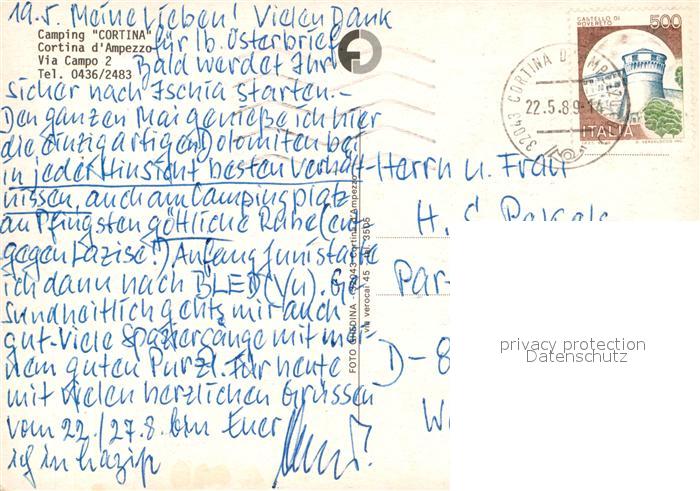 19.5. Meine Lieben! Vielen Dank
Camping "CORTINA"
Cortina d'Ampezzo
Via Campo 2
Tel. 0436/2483
für lb. Osterbrief
Bald werdet Ihr
sicher nach Ischia starten.-
Den ganzen Mai genieße ich hier
die einzigartigen Dolomiten bei
in jeder Hinsicht besten Verhält-
nissen, auch am Campingplatz
an Pfingsten göttliche Ruhe (ent-
gegen Lazise!) Anfang Juni starte
ich dann nach BLED (Yu). Ge-
sundheitlich gehts mir auch
gut. Viele Spaziergänge mit mei-
nem guten Purzl. Für heute
mit vielen herzlichen Grüssen
vom 22./27.8. bin Euer
ich in Lazise
FOTO GHEDINA - 32043 Cortina d'Ampezzo
via verocai 45 - tel. 3505
CASTELLO DI
ROVERETO
500
ITALIA
32043 CORTINA D'AMPEZZO
22.5.89-14
Herrn u. Frau
H.
Par-
D-8
W
privacy protection
Datenschutz